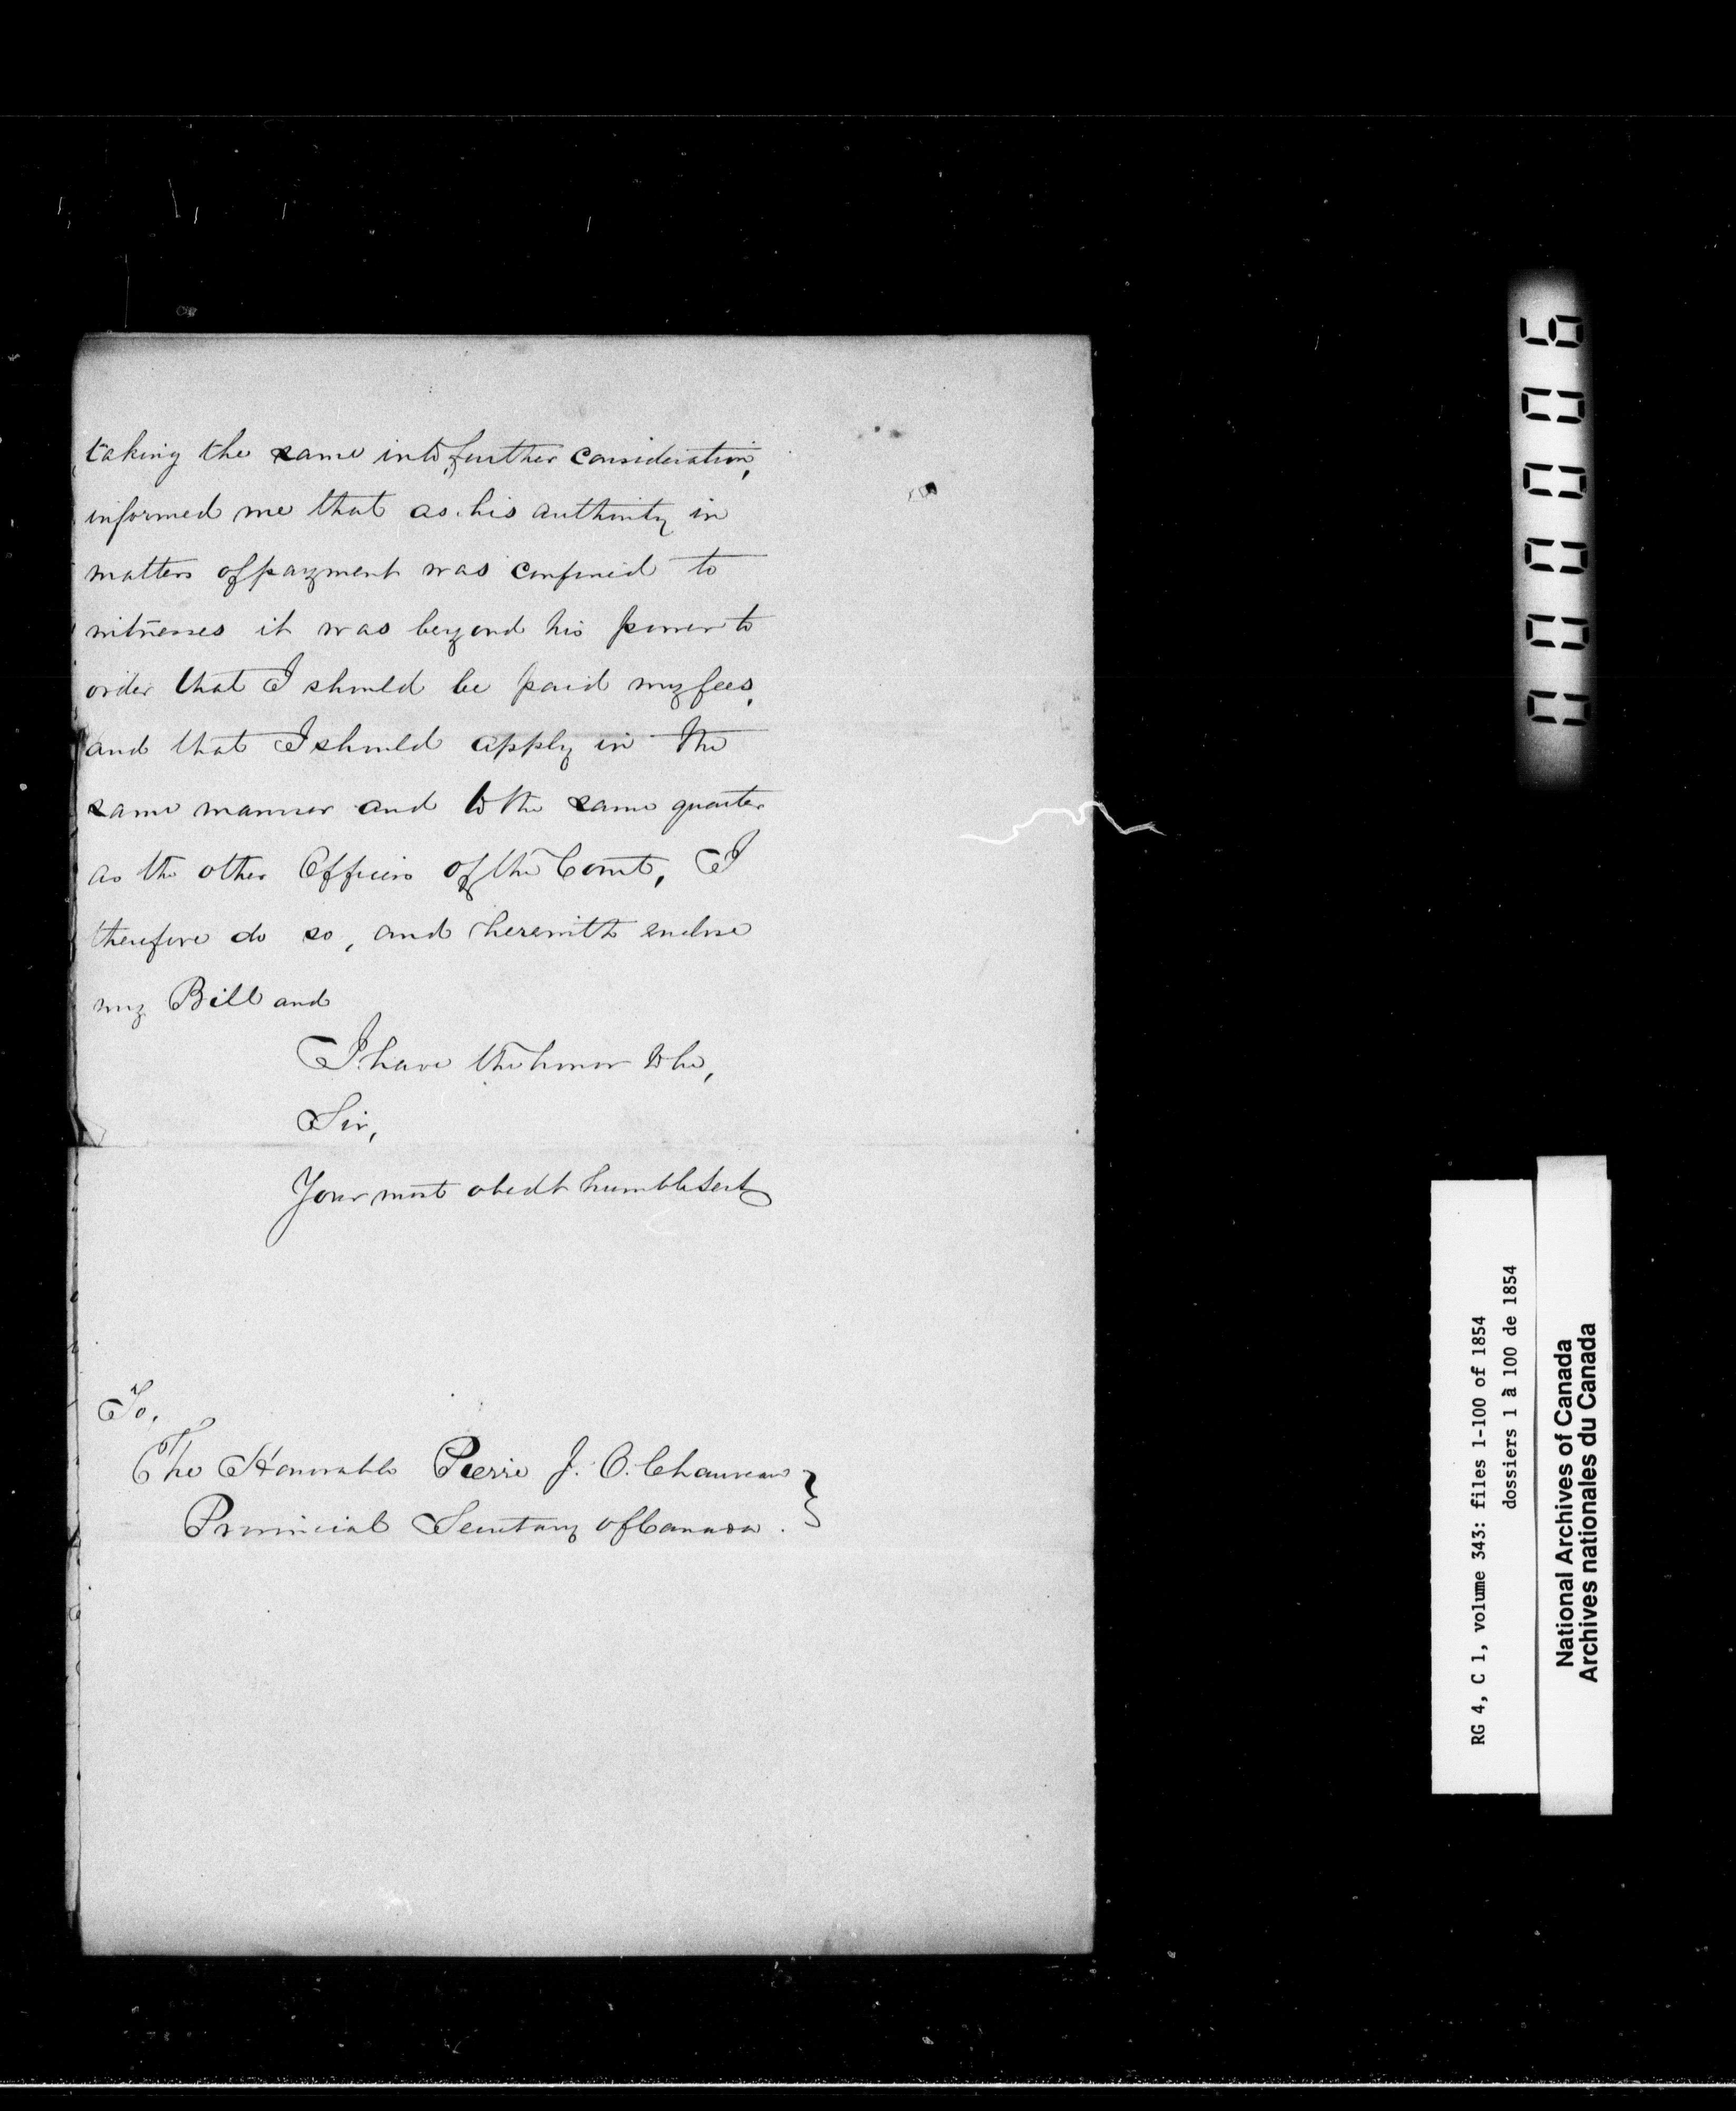 taking the same into further consideration,
informed me that as his authority in
matters of payment was confined to
witnesses it was beyond his power to
order that I should be paid my fees,
and that I should apply in the
same manner and to the same quarter
as the other Officers of the Court, I
therefore do so, and herewith enclose
my Bill and
I have the honor to be,
Sir,
Your most obedt humble Sert
To,
The Honorable Pierre J. O. Chauveau
Provincial Secretary of Canada.
000006
RG 4, C 1, volume 343: files 1-100 of 1854
dossiers 1 à 100 de 1854
National Archives of Canada
Archives nationales du Canada